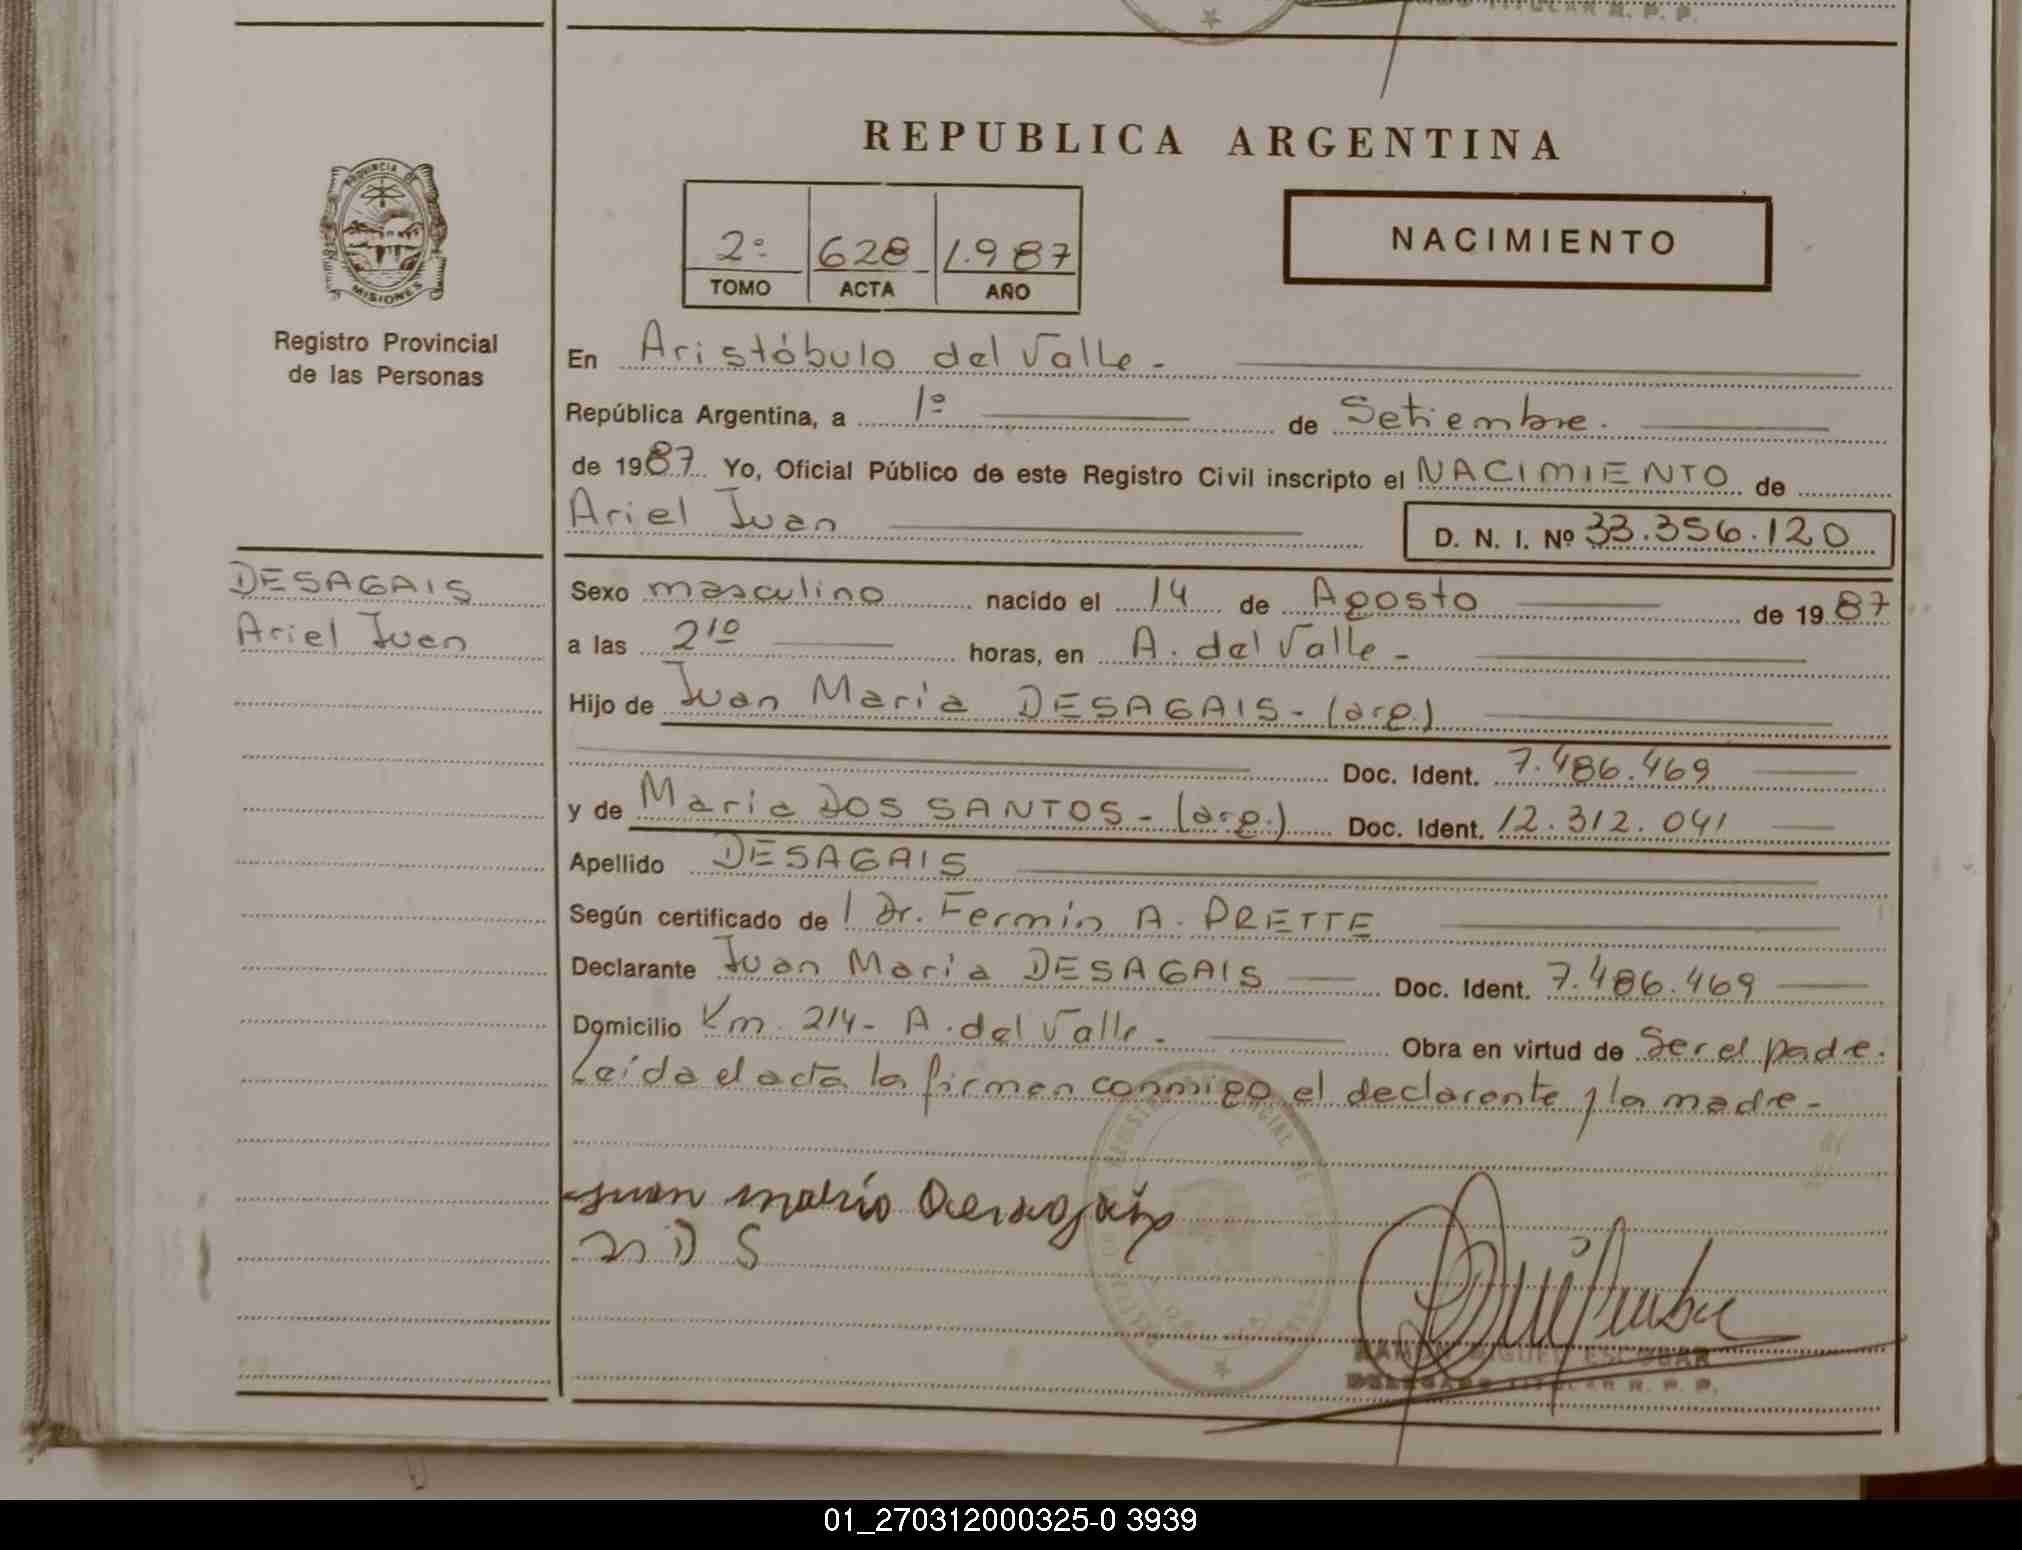 TITULAR R. P. P.
REPUBLICA ARGENTINA
PROVINCIA DE
MISIONES
Registro Provincial
de las Personas
2º 628 1.987
TOMO ACTA AÑO
NACIMIENTO
En Aristóbulo del Valle.-
República Argentina, a 1º de Setiembre.
de 1987 Yo, Oficial Público de este Registro Civil inscripto el NACIMIENTO de
Ariel Juan D. N. I. Nº 33.356.120
DESAGAIS
Ariel Juan
Sexo masculino nacido el 14 de Agosto de 1987
a las 2¹⁰ horas, en A. del Valle -
Hijo de Juan María DESAGAIS - (arg.)
Doc. Ident. 7.486.469
y de María DOS SANTOS - (arg.) Doc. Ident. 12.312.041
Apellido DESAGAIS
Según certificado de / Dr. Fermín A. PRETTE
Declarante Juan María DESAGAIS Doc. Ident. 7.486.469
Domicilio Km. 214- A. del Valle - Obra en virtud de Ser el padre.
Leída el acta la firman conmigo el declarante y la madre -
Juan María Desagais
m D S
RAMON MIGUEL ESCOBAR
DELEGADO TITULAR R. P. P.
01_270312000325-0 3939